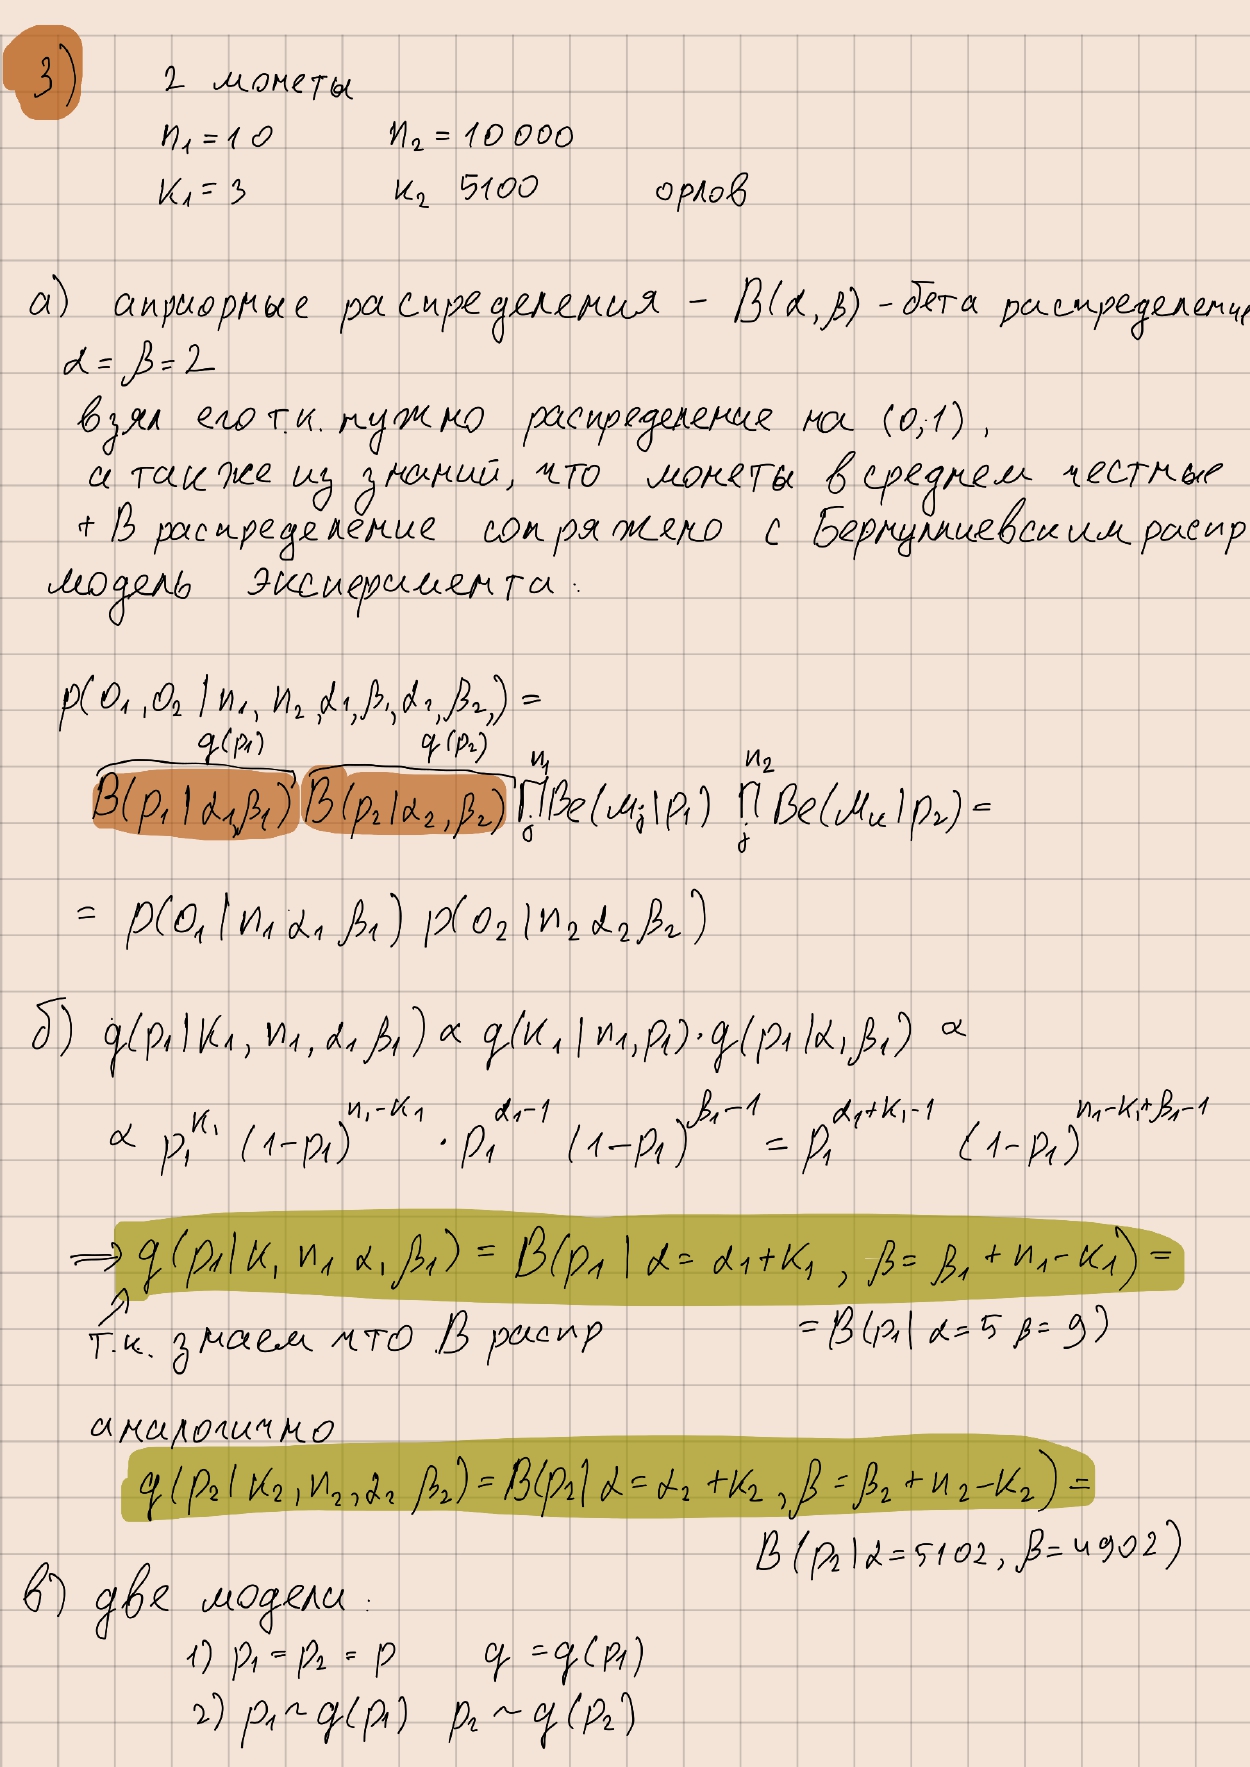 3)
2 монеты
n₁ = 10 n₂ = 10 000
k₁ = 3 k₂ 5100 орлов
а) априорные распределения – B(α, β) – бета распределение
α = β = 2
взял его т.к. нужно распределение на (0;1),
а также из знаний, что монеты в среднем честные
+ B распределение сопряжено с Бернуллиевским распр
модель эксперимента:
p(O₁, O₂ | n₁, n₂, α₁, β₁, α₂, β₂,) =
q(p₁) q(p₂) n₁ n₂
B(p₁ | α₁, β₁) B(p₂ | α₂, β₂) ∏ⱼ Be(Mⱼ | p₁) ∏ⱼ Be(Mₖ | p₂) =
= p(O₁ | n₁ α₁ β₁) p(O₂ | n₂ α₂ β₂)
б) q(p₁ | k₁, n₁, α₁ β₁) ∝ q(k₁ | n₁, p₁) · q(p₁ | α₁ β₁) ∝
∝ p₁^{k₁} (1-p₁)^{n₁-k₁} · p₁^{α₁-1} (1-p₁)^{β₁-1} = p₁^{α₁+k₁-1} (1-p₁)^{n₁-k₁+β₁-1}
⇒ q(p₁ | k₁ n₁ α₁ β₁) = B(p₁ | α = α₁ + k₁, β = β₁ + n₁ - k₁) =
т.к. знаем что B распр = B(p₁ | α = 5 β = 9)
аналогично
q(p₂ | k₂, n₂, α₂ β₂) = B(p₂ | α = α₂ + k₂, β = β₂ + n₂ - k₂) =
B(p₂ | α = 5102, β = 4902)
в) две модели:
1) p₁ = p₂ = p q = q(p₁)
2) p₁ ~ q(p₁) p₂ ~ q(p₂)